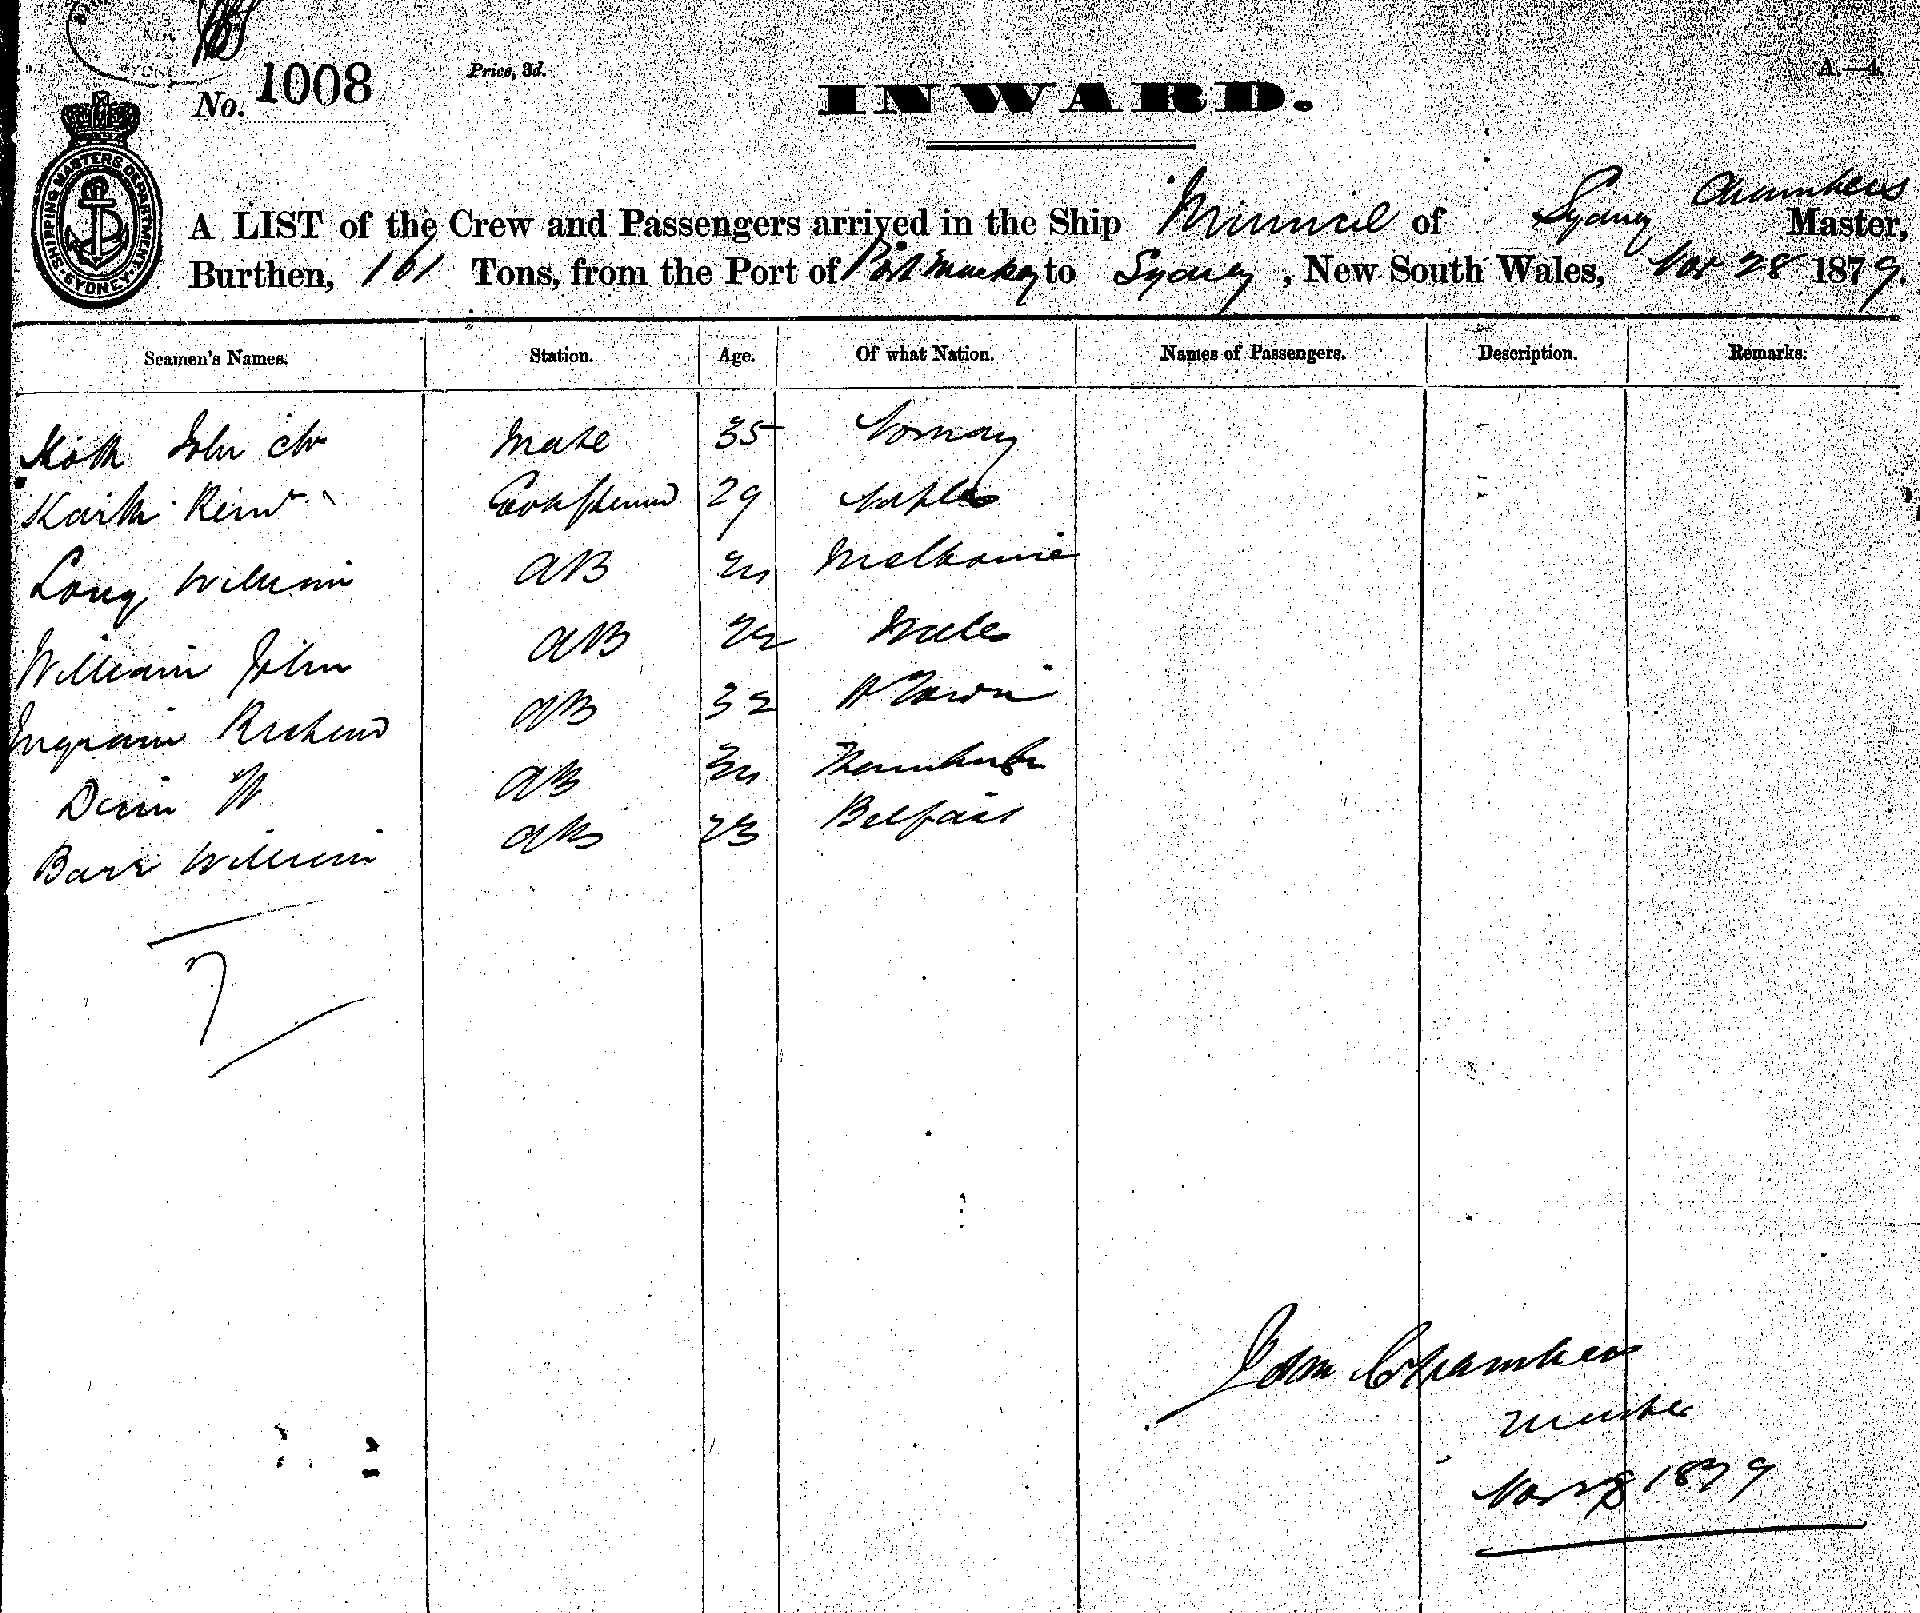 No. 1008
Price, 3d.
INWARD.
A.—4.
SHIPPING MASTERS DEPARTMENT SYDNEY
A LIST of the Crew and Passengers arrived in the Ship of Sydney Chambers Master,
Burthen, 161 Tons, from the Port of Port Mackay to Sydney, New South Wales, Nov 28 1879.
Seamen's Names. Station. Age. Of what Nation. Names of Passengers. Description. Remarks.
John Mate 35 Norway
29 Naples
Long William AB Melbourne
William John AB
Ingram Richard AB 32 H Town
W AB
Barr William AB 23 Belfast
7
John Chambers
Master
Nov 28 1879